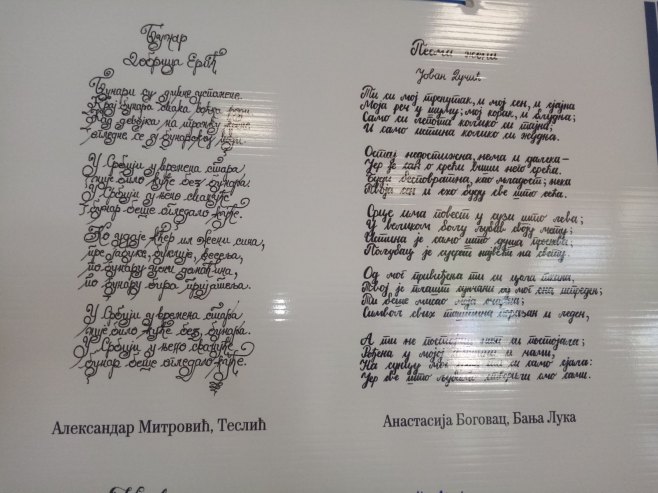 Бунар
Добрица Ерић
Бунари су дивне успомене.
Крај бунара свака воћка роди
Кад девојка на
огледне се у бунарској води.
У Србији у времена стара
није било куће без бунара.
У Србији у њено свануће
бунар беше огледало куће.
Ко удаје кћер ил жени сина,
пре јабуке, буклије, весеља,
по бунару цени домаћина,
по бунару бира пријатеља.
У Србији у времена стара
није било куће без бунара.
У Србији у њено свануће
бунар беше огледало куће.
Александар Митровић, Теслић
Песма жени
Јован Дучић
Ти си мој тренутак, и мој сен, и сјајна
Моја реч у шуму; мој корак, и блудња;
Само си лепота колико си тајна;
И само истина колико си жудња.
Остај недостижна, нема и далека –
Јер је сан о срећи виши него срећа.
Буди бесповратна, као младост; нека
Твоја сен и ехо буду све што сећа.
Срце има повест у сузи што лева;
У великом болу љубав своју мету;
Истина је само што душа проснева;
Пољубац је сусрет највећи на свету.
Од мог привиђења ти си цела ткана,
Твој је плашт сунчани од мог сна испреден;
Ти беше мисао моја очарана;
Симбол свих таштина поразан и леден,
А ти не постојиш нити си постојала;
Рођена у мојој тишини и чами,
На сунцу мог срца ти си само сјала:
Јер све што љубимо створили смо сами.
Анастасија Боговац, Бања Лука